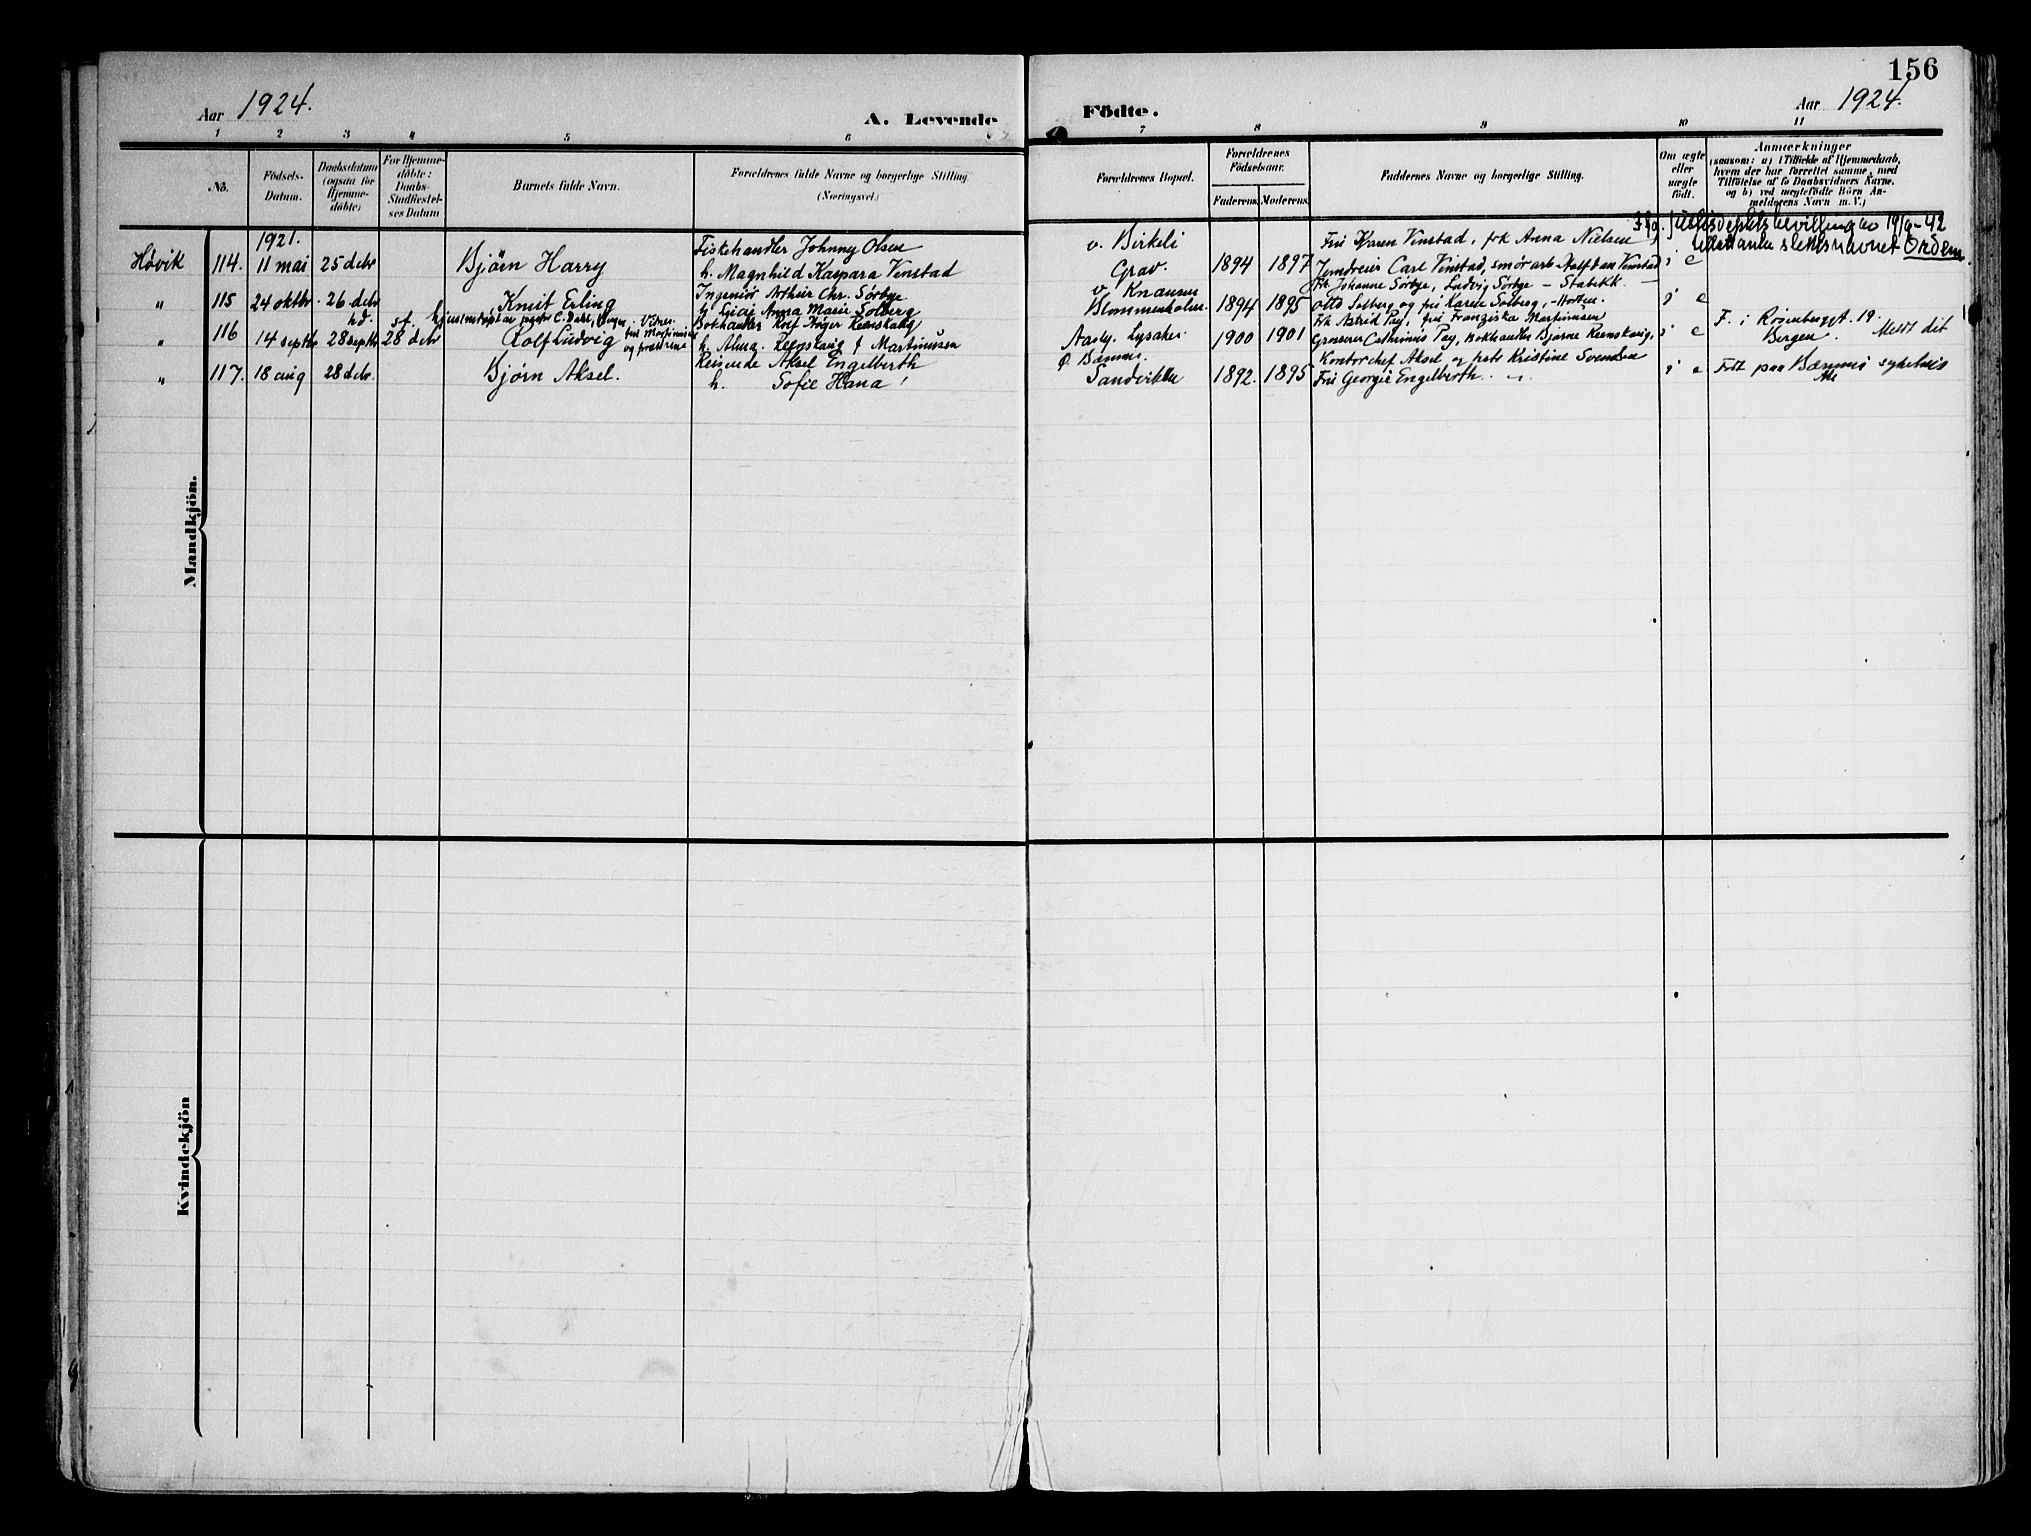 156
Aar 1924.
A. Levende
Födte.
Aar 1924.
1 2 3 4 5 6 7 8 9 10 11
No.
Födsels-
Datum.
Daabsdatum
(ogsaa for
Hjemme-
döbte)
For Hjemme-
döbte:
Daabs-
Stadfæstel-
ses Datum
Barnets fulde Navn.
Forældrenes fulde Navne og borgerlige Stilling
(Næringsvei.)
Forældrenes Bopæl.
Forældrenes
Födselsaar.
Faderens. Moderens.
Faddernes Navne og borgerlige Stilling.
Om ægte
eller
uægte
födt.
Anmærkninger
(saasom: a) i Tilfælde af Hjemmedaab,
hvem der har forrettet samme, med
Tilföielse af to Daabsvidners Navne.
og b) ved uægtefödte Börn An-
melderens Navn m. V.)
Mandkjön.
1921.
Høvik 114. 11 mai 25 debr Bjørn Harry
Fiskehandler Johnny Olsen
h. Magnhild Kaspara Vinstad
v. Birkeli
Grav. 1894 1897
Fru Karen Vinstad, frk Anna Nielsen
Jerndreier Carl Vinstad, smør arb Halfdan Vinstad
19/9-42
slektsnavnet Ordem
" 115 24 oktbr. 26 debr Knut Erling
Ingeniør Arthur Chr. Sörbye
Anna Marie Solberg
v. Knausen
Blommenholm. 1894 1895
Frk Johanne Sörbye, Ludvig Sörbye - Stabekk
Otto Solberg og fru Karen Solberg, - Horten. e
" 116 14 septbr hd. 28 septbr st. 28 debr
Rolf Ludvig
C. Dahl, Vidner fru Martinusen
og forældrene
Bokhandler Rolf Reenskaug
h. Alma Reenskaug f Martinusen
Aasly. Lysaker
Ø. Bærum. 1900 1901
Frk Astrid Pay, fru Franziska Martinusen
Grosserer Cathrinus Pay, Bokhandler Bjarne Reenskaug, e
F. i Rosenberggt. 19.
Bergen. Meldt dit
" 117. 18 aug 28 debr. Bjørn Aksel.
Reisende Aksel Engelberth
h. Sofie Hana
Sandvikke 1892. 1895
Kontorchef Aksel og frk Kristine Svendsen
Fru Georgie Engelberth. e
Født paa Bærums sykehus
Kvindekjön